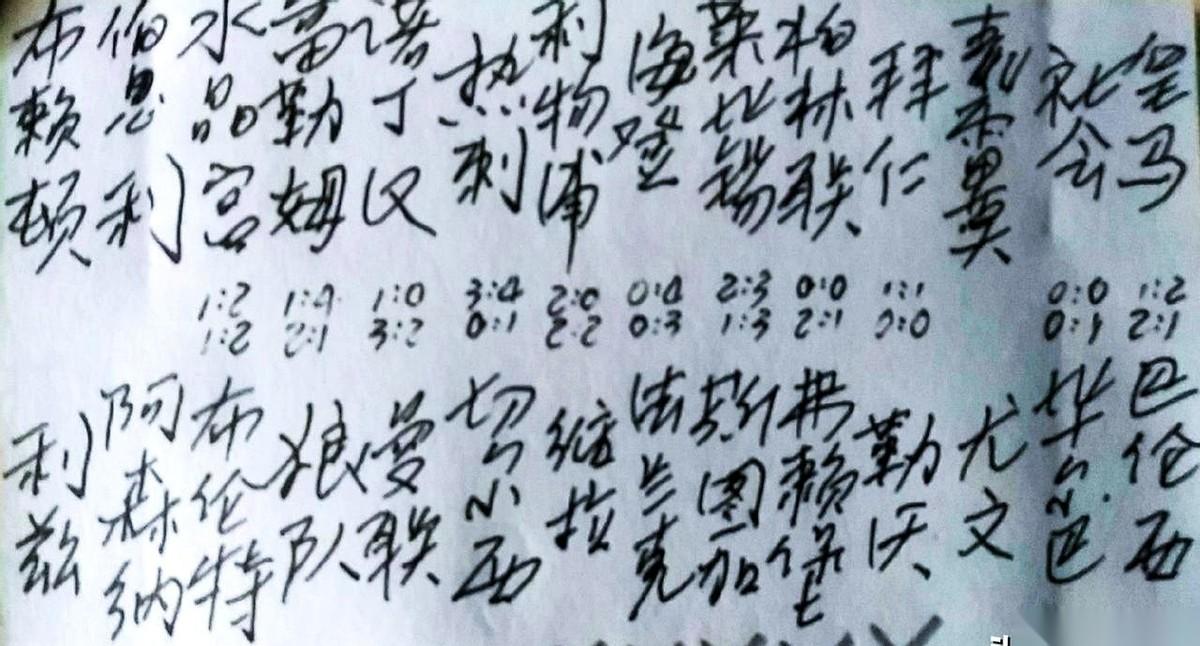 布赖顿
伯恩利
水晶宫
富勒姆
诺丁汉
热刺
利物浦
海登
莱比锡
柏林联
拜仁
社会
皇马
1:2 1:4 1:0 3:4 2:0 0:4 2:3 0:0 1:1 0:0 1:2
1:2 2:1 3:2 0:1 2:2 0:3 1:3 2:1 0:1 2:1
利兹
阿森纳
布伦特
狼队
曼联
切尔西
维拉
法兰克
斯图加
弗赖堡
勒沃
尤文
毕尔巴
巴伦西